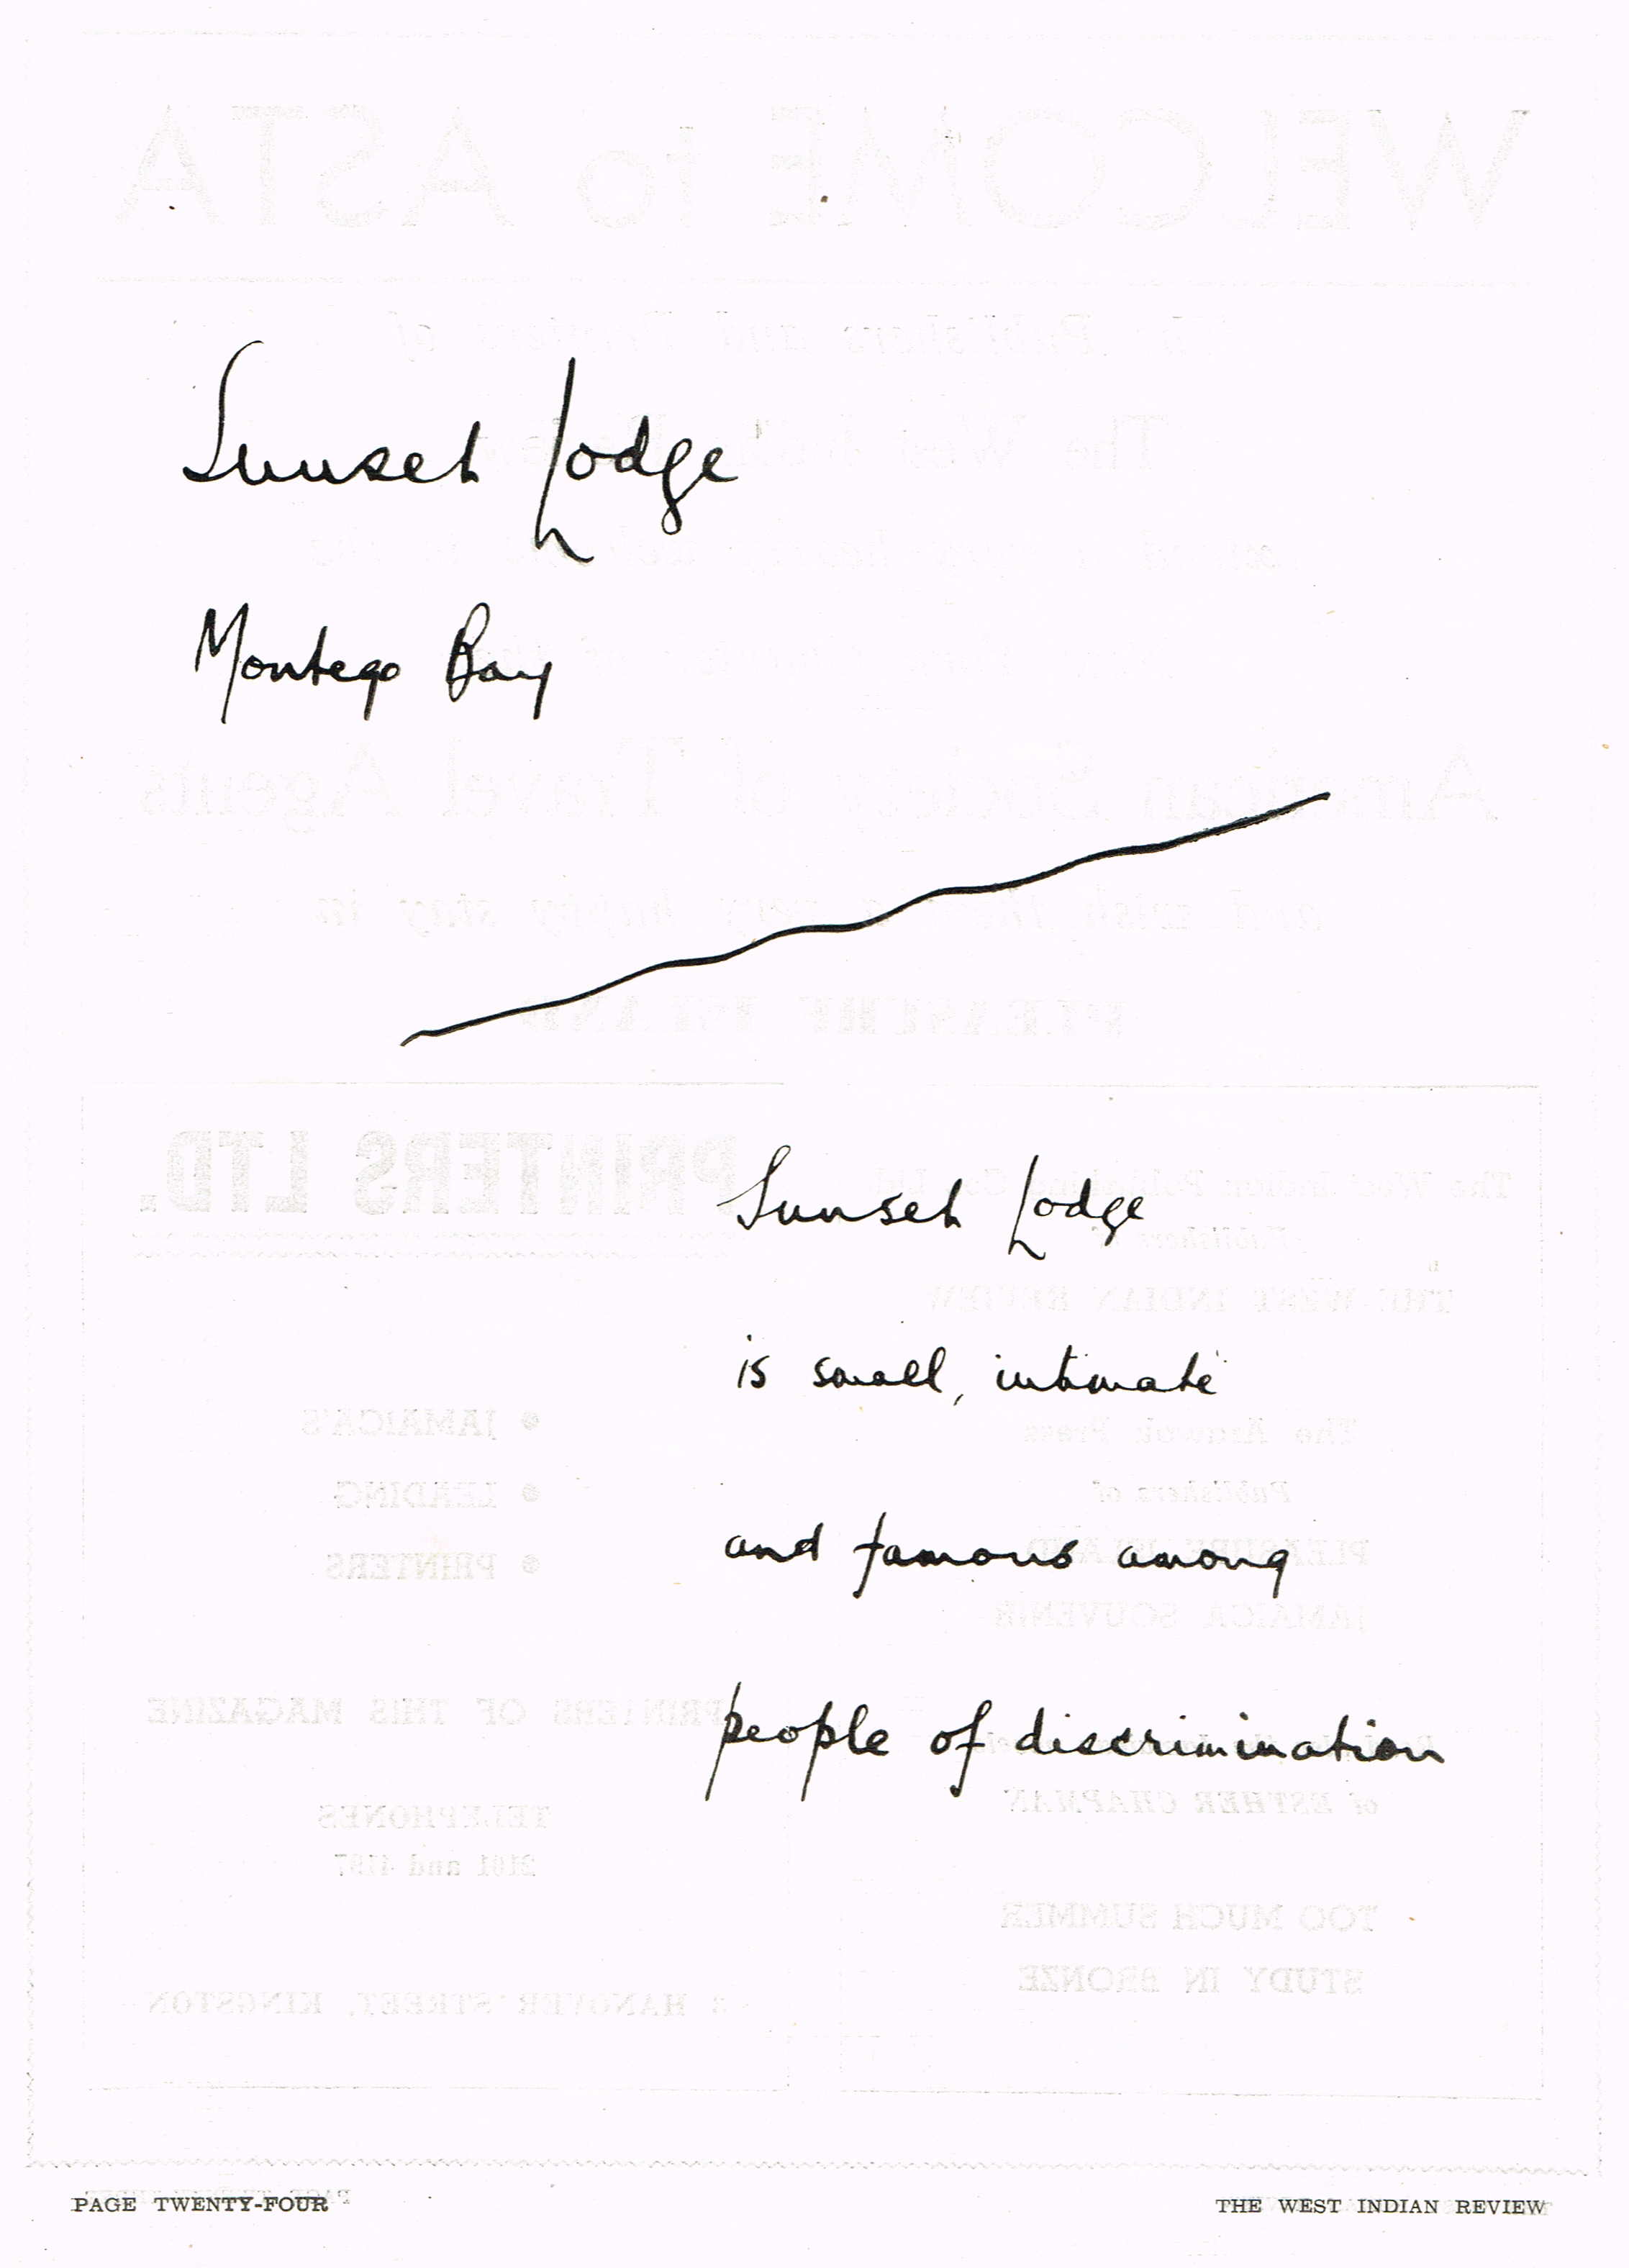 Sunset Lodge
Montego Bay
Sunset Lodge
is small, intimate
and famous among
people of discrimination
PAGE TWENTY-FOUR THE WEST INDIAN REVIEW